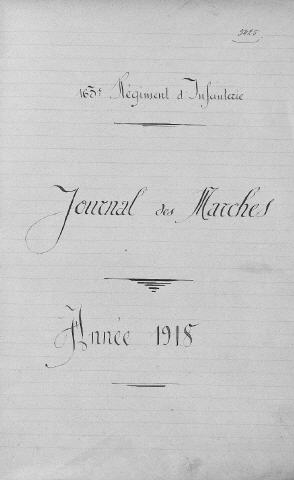 163e Régiment d'Infanterie
Journal des Marches
Année 1918